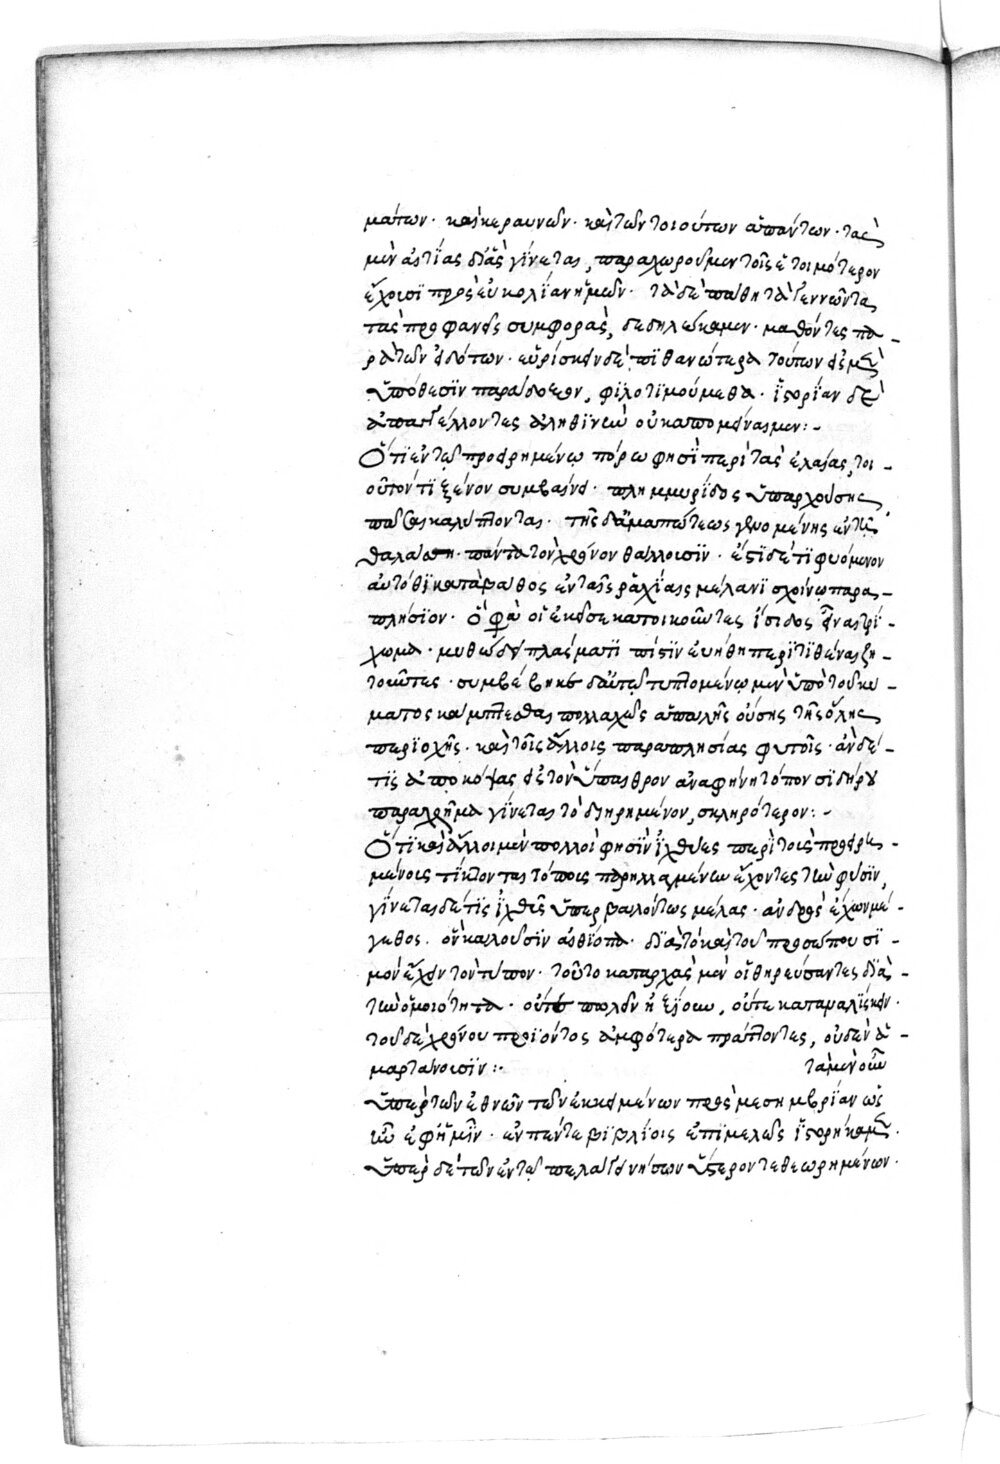 μάτων· καὶ κεραυνῶν· καὶ τῶν τοιούτων ἁπάντων· τὰς
μὲν αἰτίας δι' ἃς γίνεται, παραχωροῦμεν τοῖς ἑτοιμότερον
ἔχουσι πρὸς εὐκολίαν ἡμῶν· τὰ δὲ πάθη τὰ γεννῶντα
τὰς προφανεῖς συμφορὰς, δεδηλώκαμεν· μαθόντες πα-
ρὰ τῶν εἰδότων· εὑρίσκειν δὲ πιθανώτερα τούτων εἰς μὲν
ὑπόθεσιν παράδοξον, φιλοτιμούμεθα· ἱστορίαν δὲ
ἀπαγγέλλοντες ἀληθινὴν οὐκ ἀπομένομεν:-
Ὅτι ἐν τῷ προειρημένῳ πόρῳ φησὶ περὶ τὰς ἐλαίας, τοι-
οῦτόν τι ξένον συμβαίνει· πλημμυρίδος ὑπαρχούσης
πᾶσαι καλύπτονται· τῆς δ' ἀμπώτεως γενομένης ἐν τῇ
θαλάσσῃ· πάντα τὸν χρόνον θάλλουσιν· ἔστι δέ τι φυόμενον
αὐτόθι κατὰ βάθος ἐν ταῖς ῥαχίαις μέλανι σχοίνῳ παρα-
πλήσιον· ὅ φα οἱ ἐκεῖσε κατοικοῦντες ἴσιδος εἶναι τρί-
χωμα· μυθώδει πλάσματι πίστιν εὐήθη περιτιθέναι ζη-
τοῦντες· συμβέβηκε δ' αὐτῷ τυπτομένῳ μὲν ὑπὸ τοῦ κύ-
ματος κάμπτεσθαι πολλαχῶς ἁπαλῆς οὔσης τῆς ὅλης
περιοχῆς· καὶ τοῖς ἄλλοις παραπλησίας φυτοῖς· ἂν δέ
τις ἀποκόψας εἰς τὸν ὕπαιθρον ἀναφήνῃ τόπον σιδήρου
παραχρῆμα γίνεται τὸ διῃρημένον, σκληρότερον:-
Ὅτι καὶ ἄλλοι μὲν πολλοὶ φησὶν ἰχθύες περὶ τοὺς προειρη-
μένοις τίκτονται τόποις παρηλλαγμένην ἔχοντες τὴν φύσιν,
γίνεται δέ τις ἰχθὺς ὑπερβαλόντως μέλας· ἀνδρὸς ἔχων μέ-
γεθος. ὃν καλοῦσιν αἰθίοπα· διὰ τὸ καὶ τοῦ προσώπου σι-
μὸν ἔχειν τὸν τύπον· τοῦτο κατ' ἀρχὰς μὲν οἱ θηρεύσαντες διὰ
τὴν ὁμοιότητα· οὔτε πωλεῖν ἠξίουν, οὔτε καταναλίσκειν·
τοῦ δὲ χρόνου προϊόντος ἀμφότερα πράττοντες, οὐδὲν ἁ-
μαρτάνουσιν:· τὰ μὲν οὖν
ὑπὲρ τῶν ἐθνῶν τῶν ἐκκειμένων πρὸς μεσημβρίαν ὡς
ἦν ἐφ' ἡμῖν· ἐν πέντε βιβλίοις ἐπιμελῶς ἱστορήκαμεν·
ὑπὲρ δὲ τῶν ἐν τῷ πελάγει νήσων ὕστερον τεθεωρημένων·